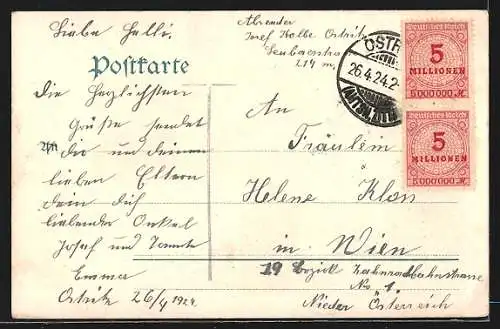 Liebe Helli!
Absender
Josef Kolbe Ostritz
214 m.
Postkarte
OSTR
26.4.24.2-
Deutsches Reich
5
MILLIONEN
5000000 M
Deutsches Reich
5
MILLIONEN
5000000 M
Die herzlichsten
Grüße sendet
An
dir und deinen
lieben Eltern
dein dich
liebender Onkel
Josef und Tante
Emma
Ostritz 26/4 1924
An
Fräulein
Helene Klos
in Wien
19 Bezirk Zahnradbahnstrasse
No 1.
Nieder Österreich